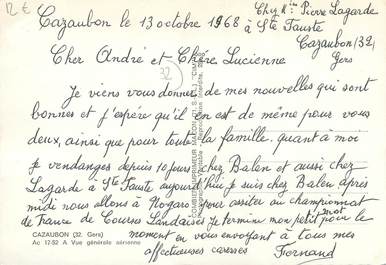 12 €
Cazaubon le 13 octobre 1968
Chez Mr Pierre Lagarde
à Ste Fauste
Cazaubon (32)
Gers
Cher André et Chère Lucienne
32
Je viens vous donner de mes nouvelles qui sont
bonnes et j'espère qu'il en est de même pour vous
deux, ainsi que pour toute la famille, quant à moi
je vendanges depuis 10 jours chez Balen et aussi chez
Lagarde à Ste Fauste aujourd'hui je suis chez Balen après
midi nous allons à Nogaro pour assiter au championnat
de France de Courses Landaises Je termine mon petit mot pour le
moment en vous envoyant à tous mes
affectueuses caresses Fernand
CAZAUBON (32. Gers)
Ac 12-52 A Vue générale aérienne
COMBIER IMPRIMEUR MACON